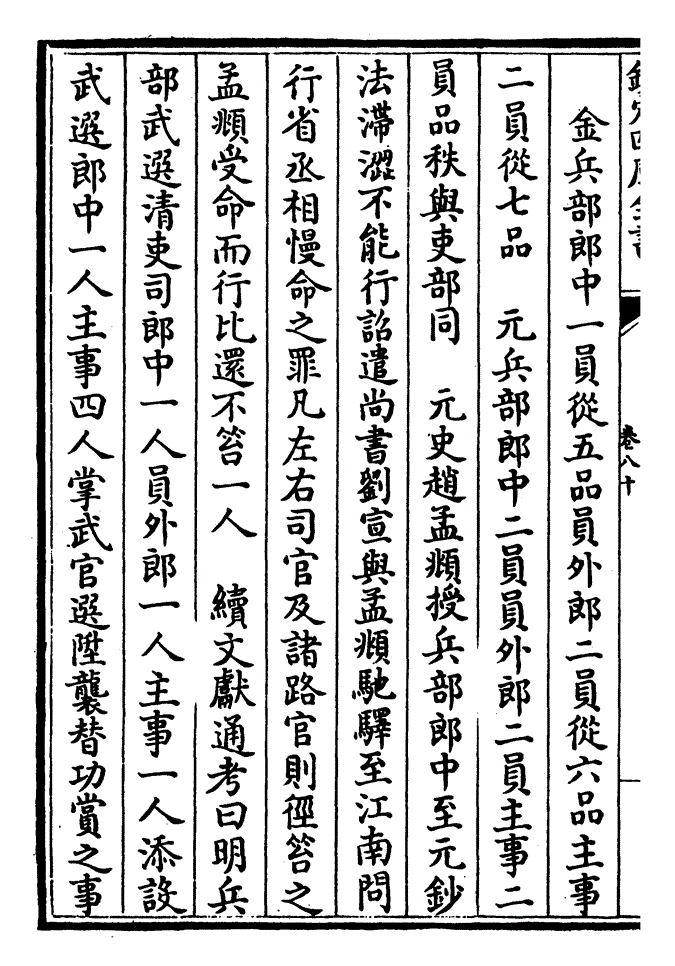 欽定四庫全書
卷八十
金兵部郎中一員從五品員外郎二員從六品主事
二員從七品 元兵部郎中二員員外郎二員主事二
員品秩與吏部同 元史趙孟頫授兵部郎中至元鈔
法滯澀不能行詔遣尚書劉宣與孟頫馳驛至江南問
行省丞相慢命之罪凡左右司官及諸路官則徑笞之
孟頫受命而行比還不笞一人 續文獻通考曰明兵
部武選清吏司郎中一人員外郎一人主事一人添設
武選郎中一人主事四人掌武官選陞襲替功賞之事